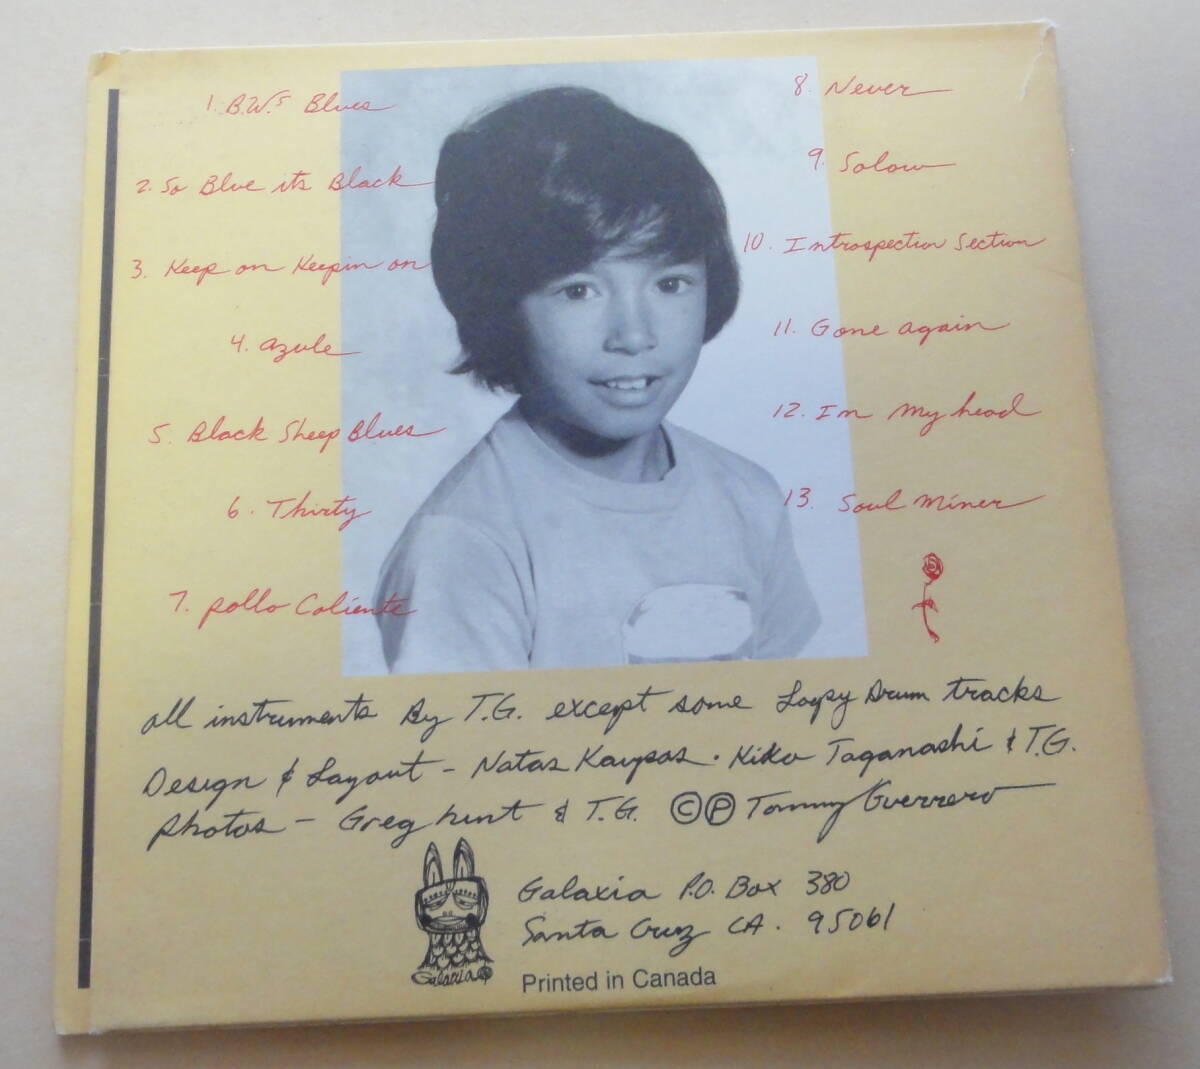 1. B.W.s Blues
2. So Blue its Black
3. Keep on Keepin on
4. azule
5. Black Sheep Blues
6. Thirty
7. pollo Caliente
8. Never
9. Solow
10. Introspection Section
11. Gone again
12. In my head
13. Soul Miner
all instruments By T.G. except some Loopy Drum tracks
Design & Layout - Natas Kaupas · Kiko Taganashi & T.G.
photos - Greg hunt & T.G. © ℗ Tommy Guerrero
Galaxia P.O. Box 380
Santa Cruz CA. 95061
Galaxia
Printed in Canada